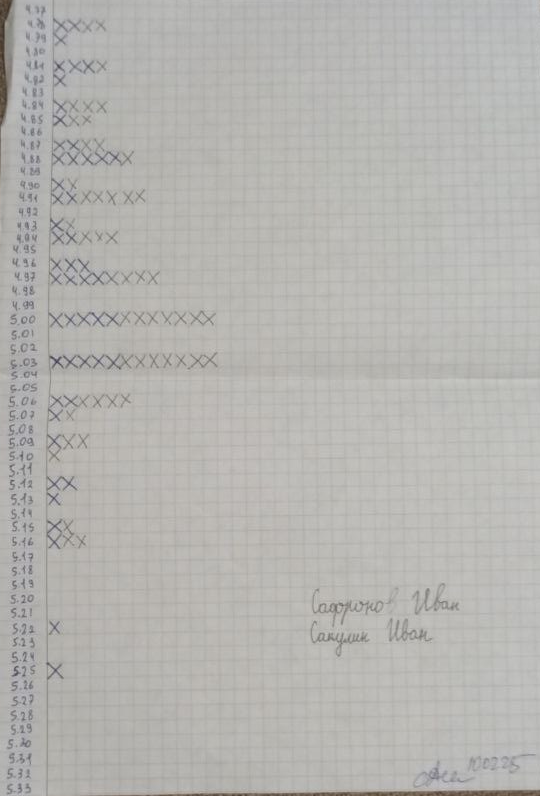 4.77
4.78 XXXX
4.79 X
4.80
4.81 XXXX
4.82 X
4.83
4.84 XXXX
4.85 XXX
4.86
4.87 XXXX
4.88 XXXXXX
4.89
4.90 XX
4.91 XXXXXXX
4.92
4.93 XX
4.94 XXXXX
4.95
4.96 XXX
4.97 XXXXXXXX
4.98
4.99
5.00 XXXXXXXXXXXX
5.01
5.02
5.03 XXXXXXXXXXXX
5.04
5.05
5.06 XXXXXX
5.07 XX
5.08
5.09 XXX
5.10 X
5.11
5.12 XX
5.13 X
5.14
5.15 XX
5.16 XXX
5.17
5.18
5.19
5.20
5.21
Сафронов Иван
5.22 X
Сакулин Иван
5.23
5.24
5.25 X
5.26
5.27
5.28
5.29
5.30
5.31
5.32
100225
5.33